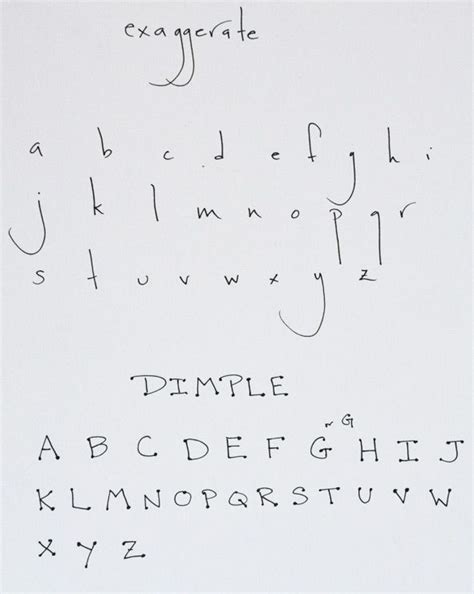 exaggerate
a b c d e f g h i
j k l m n o p q r
s t u v w x y z
DIMPLE
or G
A B C D E F G H I J
K L M N O P Q R S T U V W
X Y Z